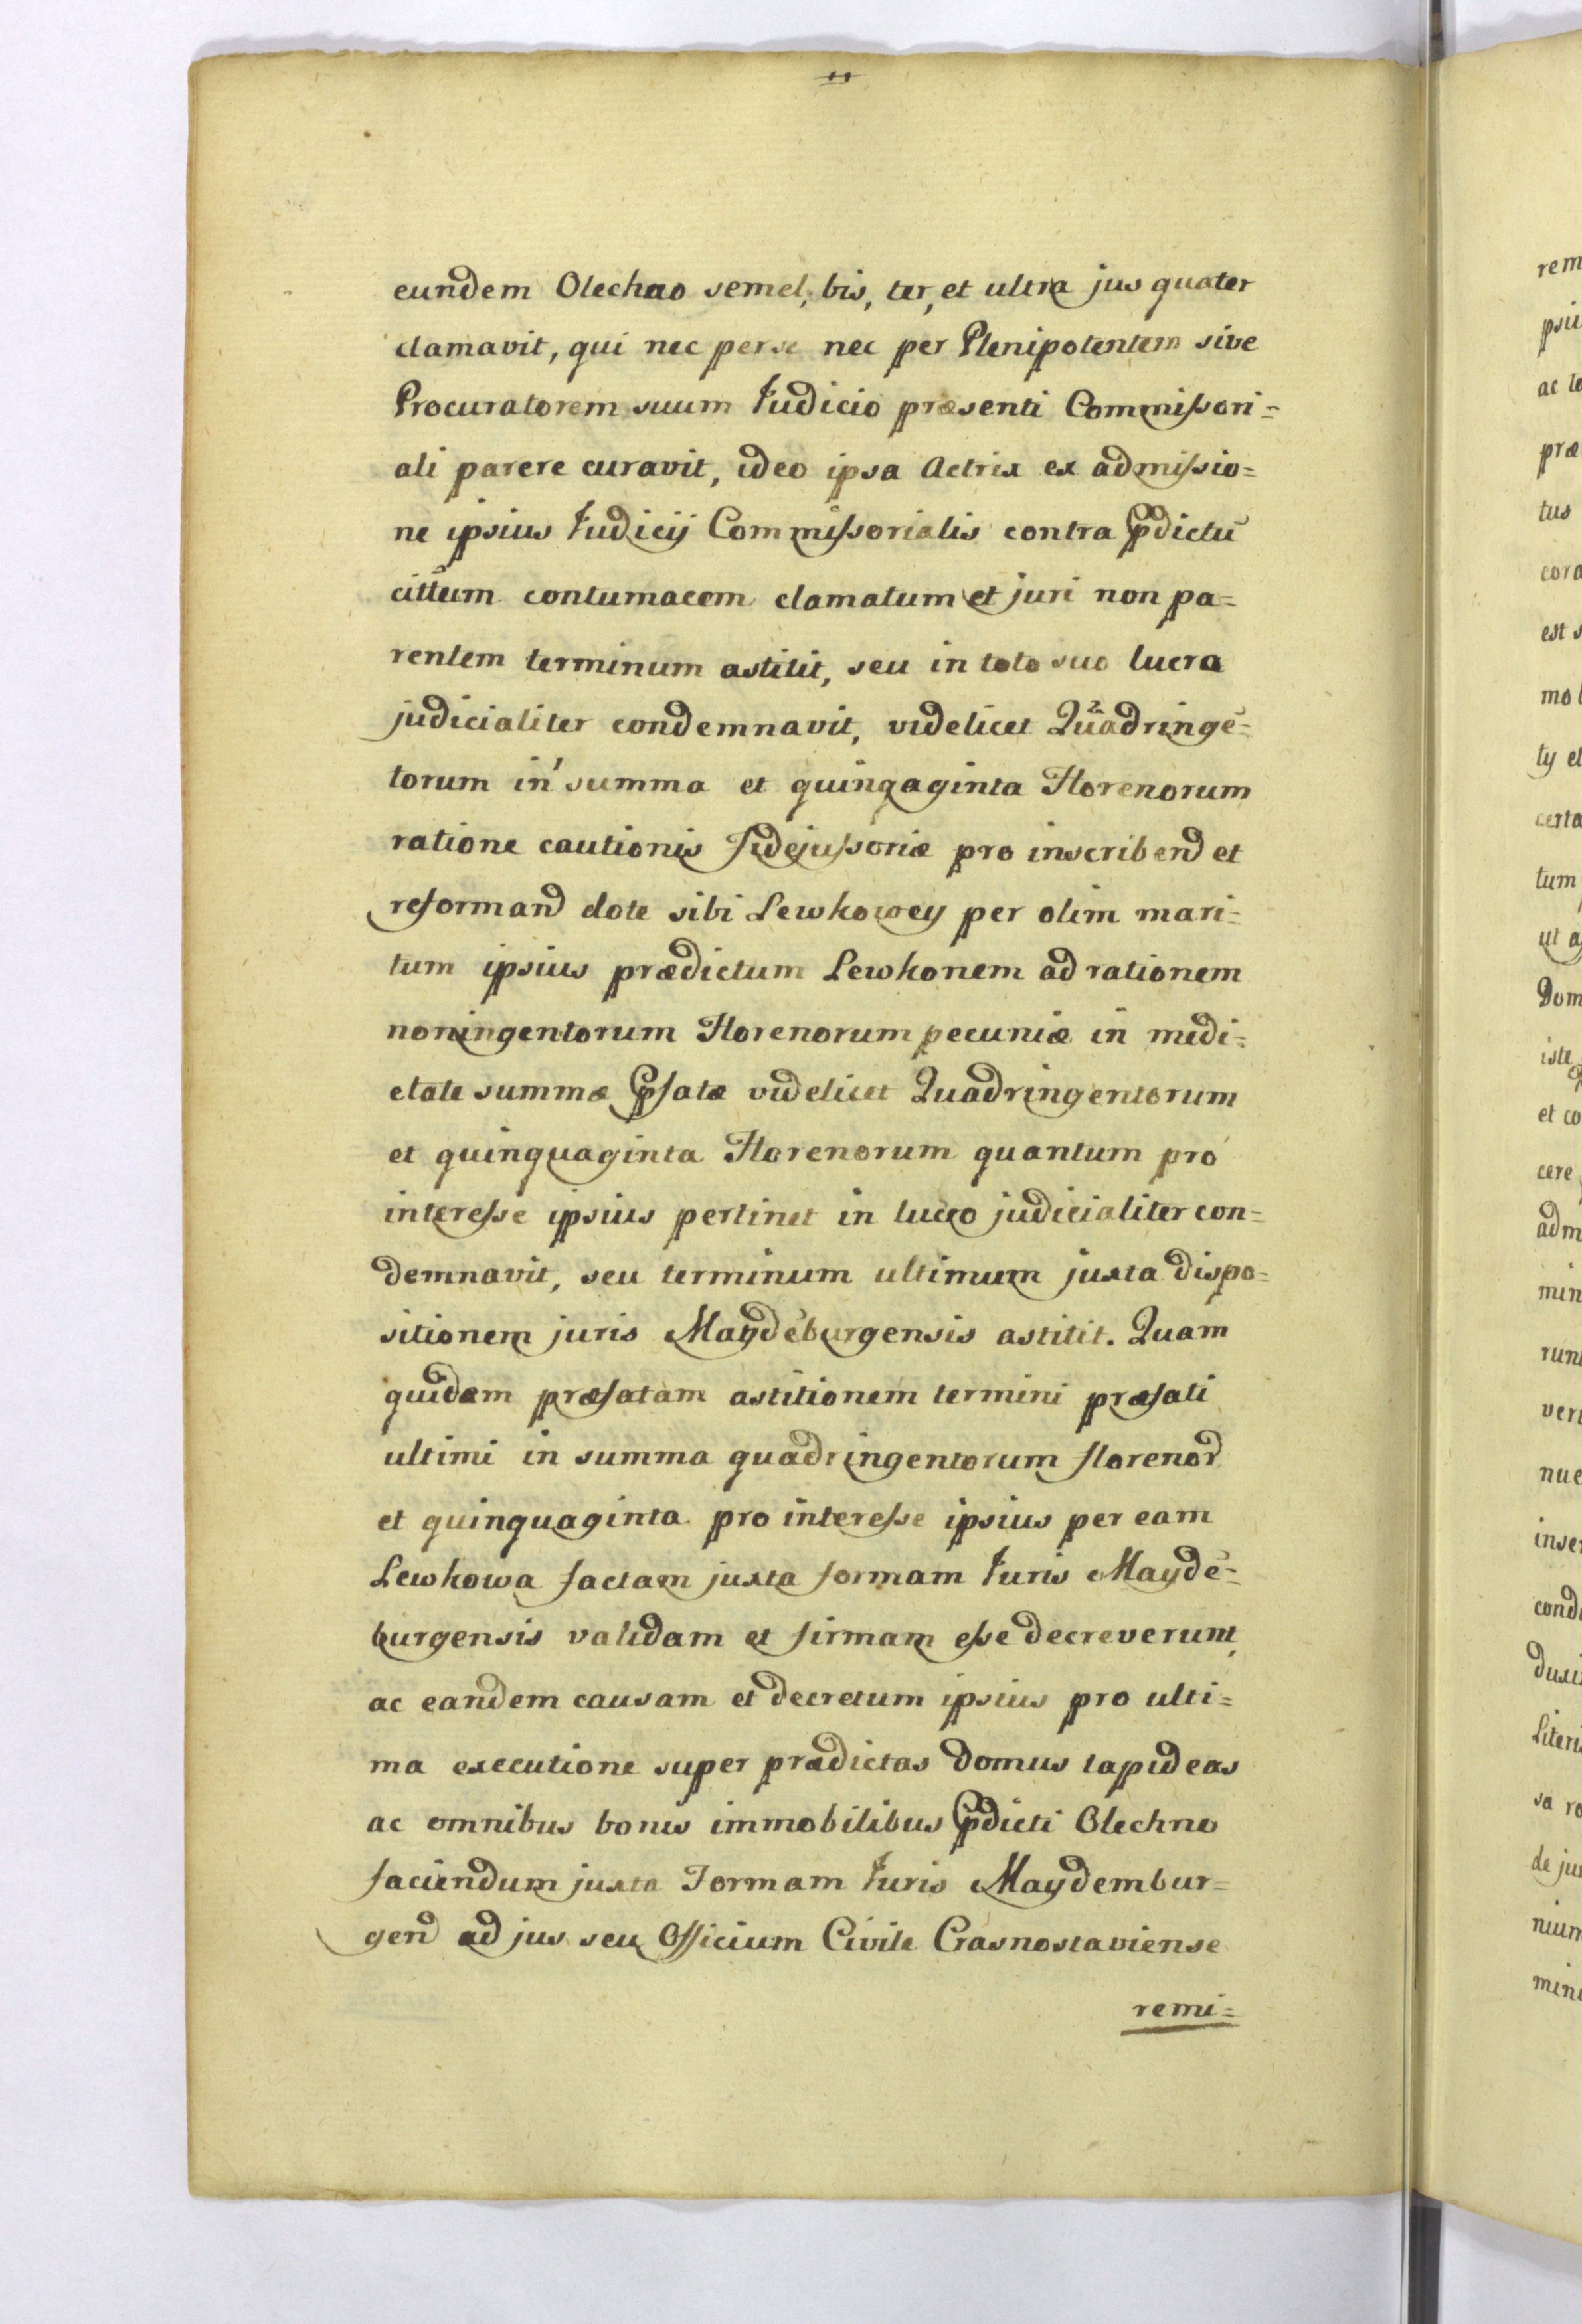 11
eundem Olechno semel, bis, ter, et ultra jus quater
clamavit, qui nec per se nec per Plenipotentem sive
Procuratorem suum Iudicio præsenti Commissori=
ali parere curavit, ideo ipsa Actrix ex admissio=
ne ipsius Iudicij Commissorialis contra Pdictū
cittum contumacem clamatum et juri non pa=
rentem terminum astitit, seu in toto suo lucra
judicialiter condemnavit, videlicet Quadringē=
torum in summa et quinqaginta Florenorum
ratione cautionis fidejussoriæ pro inscribend et
reformand dote sibi Lewkowey per olim mari=
tum ipsius prædictum Lewkonem ad rationem
noningentorum Florenorum pecuniæ in medi=
etate summæ Pfatæ videlicet Quadringentorum
et quinquaginta Florenorum quantum pro
interesse ipsius pertinet in lucro judicialiter con=
demnavit, seu terminum ultimum juxta dispo=
sitionem juris Maydeburgensis astitit. Quam
quidem præfatam astitionem termini præfati
ultimi in summa quadringentorum florenor
et quinquaginta pro interesse ipsius per eam
Lewkowa factam juxta formam Iuris Mayde=
burgensis validam et firmam esse decreverunt,
ac eandem causam et decretum ipsius pro ulti=
ma executione super prædictas domus lapideas
ac omnibus bonis immobilibus Pdicti Olechno
faciendum juxta Formam Iuris Maydembur=
gend ad jus seu Officium Civile Crasnostaviense
remi=